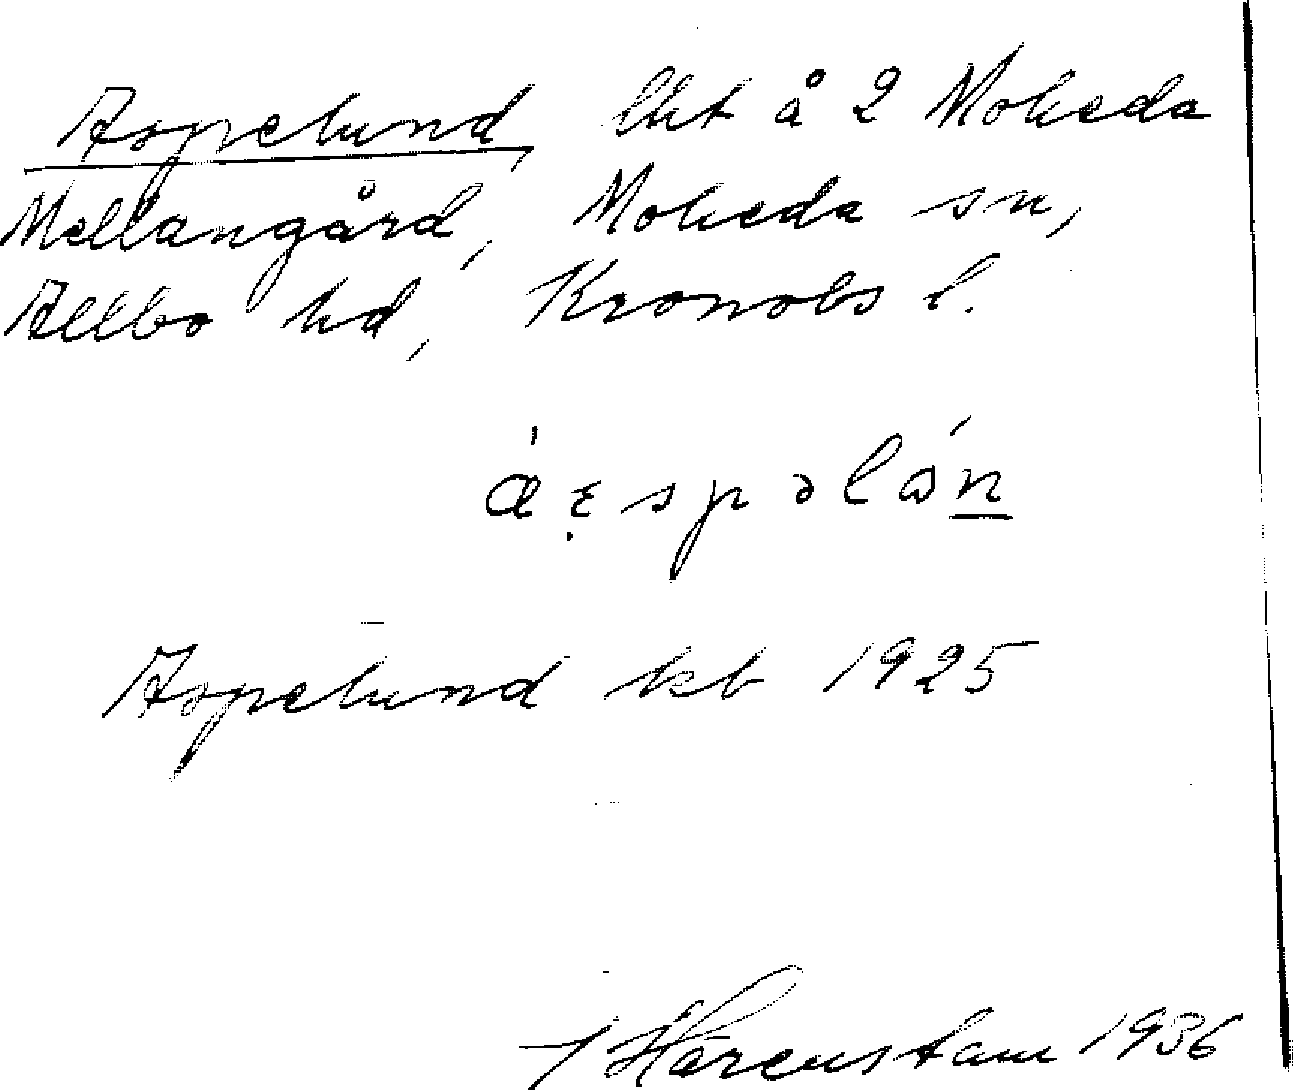 Aspelund, lht å 2 Moheda
Mellangård, Moheda sn,
Allbo hd, Kronobs l.
Aspelund kb 1925
Härenstam 1936